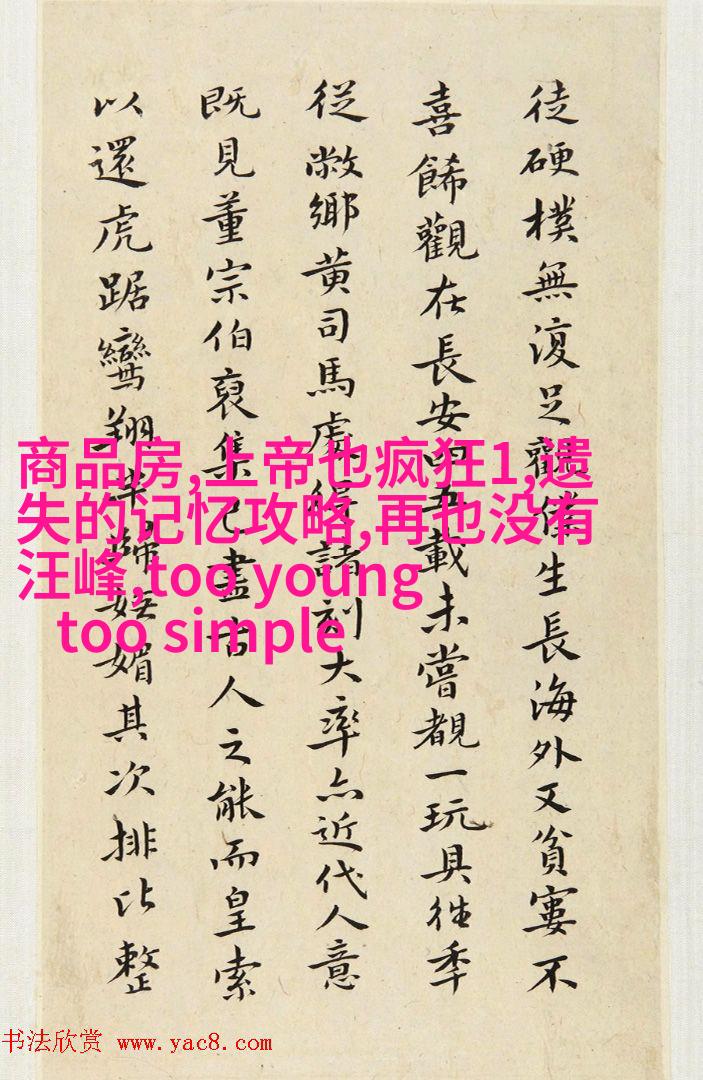 徒硬樸無復足觀僕生長海外又貧窶不
喜觀在長安五載未嘗覩一玩具往季
從敝鄉黃司馬處得諸刻大率亦近代人意
既見董宗伯裒集已盡古人之能而皇索
以還虎踞鸞翔媚其次排比整
商品房,上帝也疯狂1,遗
失的记忆攻略,再也没有
汪峰,too young
too simple
书法欣赏 www.yac8.com